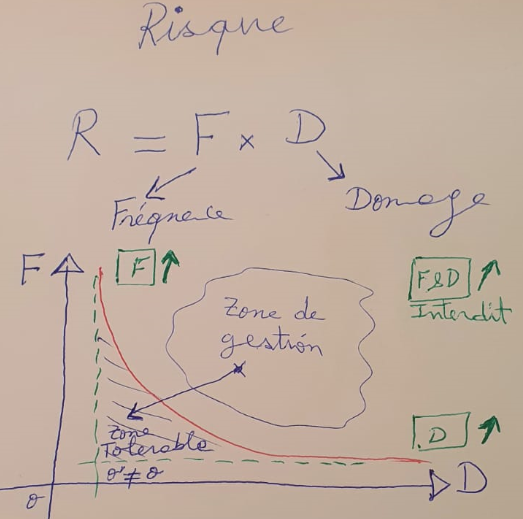 Risque
R = F x D
Fréqnece
Domage
F
F ↑
F&D ↑
Interdit
Zone de
gestión
D ↑
Zone
Tolerable
o' ≠ o
D
o